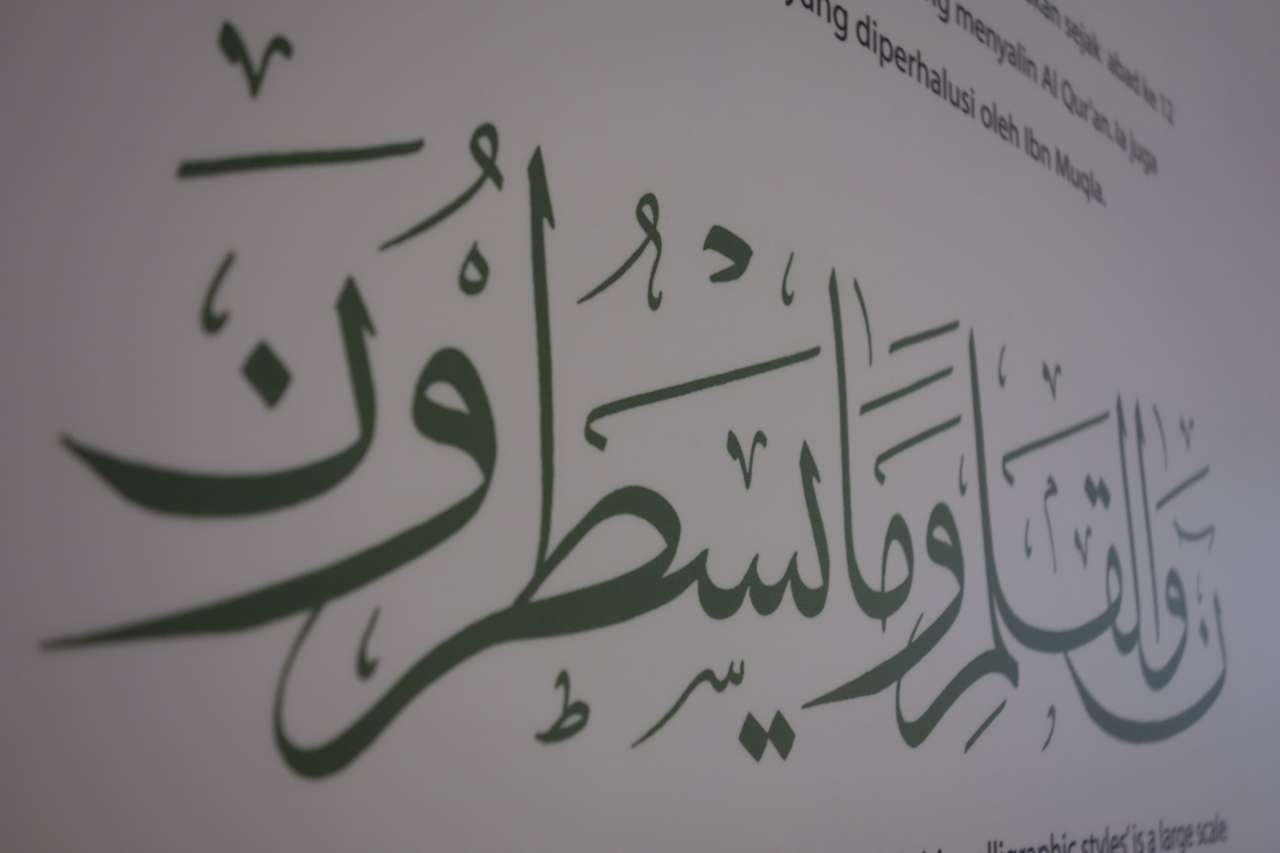 sejak abad ke 12
menyalin Al Qur'an. Ia juga
yang diperhalusi oleh Ibn Muqla.
نۤ وَالْقَلَمِ وَمَا يَسْطُرُونَ
styles' is a large scale